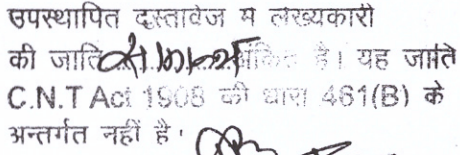 उपस्थापित दस्तावेज म लेख्यकारी
की जाति अंकित है। यह जाति
C.N.T Act 1908 की धारा 461(B) के
अन्तर्गत नहीं है।